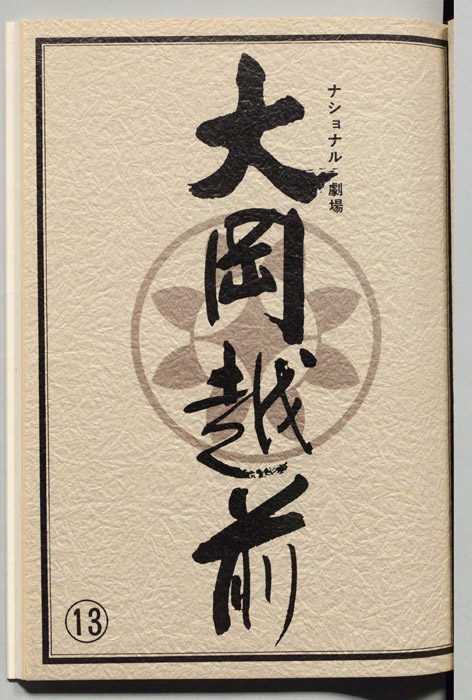 ナショナル劇場
大岡越前
⑬